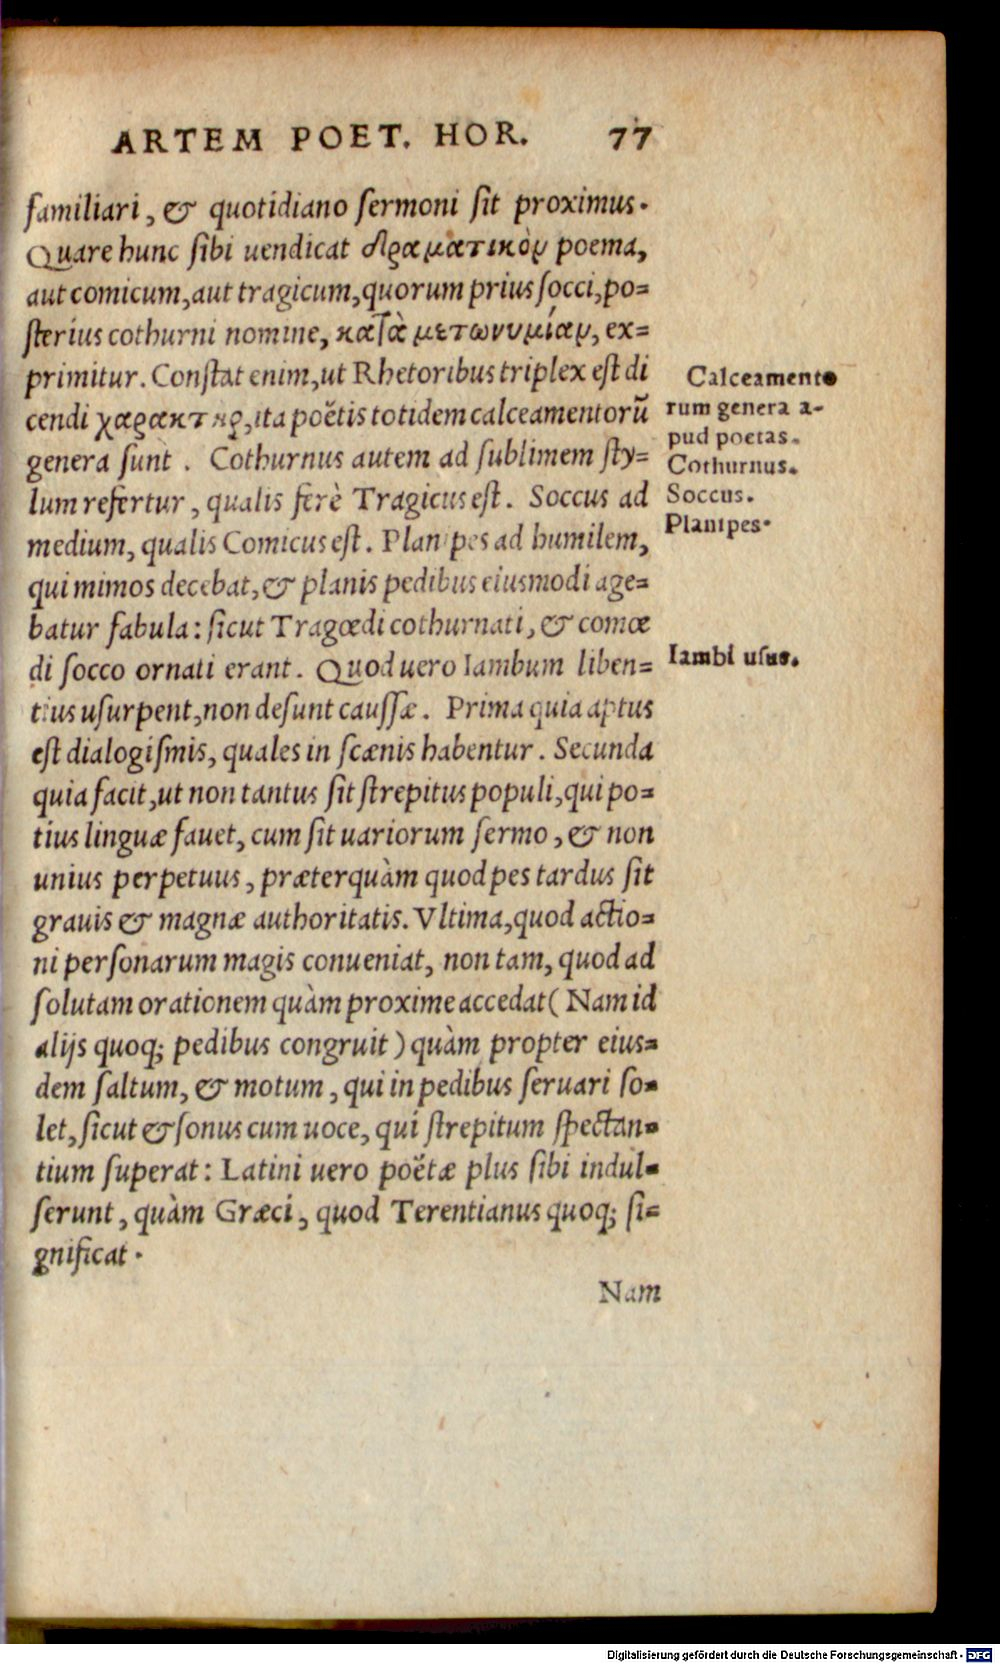 ARTEM POET. HOR. 77
familiari, & quotidiano ſermoni ſit proximus.
Quare hunc ſibi uendicat δραματικὸν poema,
aut comicum, aut tragicum, quorum prius ſocci, po=
ſterius cothurni nomine, κατὰ μετωνυμίαν, ex=
primitur. Conſtat enim, ut Rhetoribus triplex eſt di
cendi χαρακτηρ, ita poëtis totidem calceamentorū
genera ſunt. Cothurnus autem ad ſublimem ſty=
lum refertur, qualis ferè Tragicus eſt. Soccus ad
medium, qualis Comicus eſt. Planipes ad humilem,
qui mimos decebat, & planis pedibus eiusmodi age=
batur fabula: ſicut Tragœdi cothurnati, & comœ
di ſocco ornati erant. Quod uero Iambum liben=
tius uſurpent, non deſunt cauſſæ. Prima quia aptus
eſt dialogiſmis, quales in ſcænis habentur. Secunda
quia facit, ut non tantus ſit ſtrepitus populi, qui po=
tius linguæ fauet, cum ſit uariorum ſermo, & non
unius perpetuus, præterquàm quod pes tardus ſit
grauis & magnæ authoritatis. Vltima, quod actio=
ni perſonarum magis conueniat, non tam, quod ad
ſolutam orationem quàm proxime accedat (Nam id
alijs quoq; pedibus congruit) quàm propter eius=
dem ſaltum, & motum, qui in pedibus ſeruari ſo=
let, ſicut & ſonus cum uoce, qui ſtrepitum ſpectan=
tium ſuperat: Latini uero poëtæ plus ſibi indul=
ſerunt, quàm Græci, quod Terentianus quoq; ſi=
gnificat.
Nam
Calceamento
rum genera a-
pud poetas.
Cothurnus.
Soccus.
Planipes.
Iambi uſus.
Digitalisierung gefördert durch die Deutsche Forschungsgemeinschaft - DFG